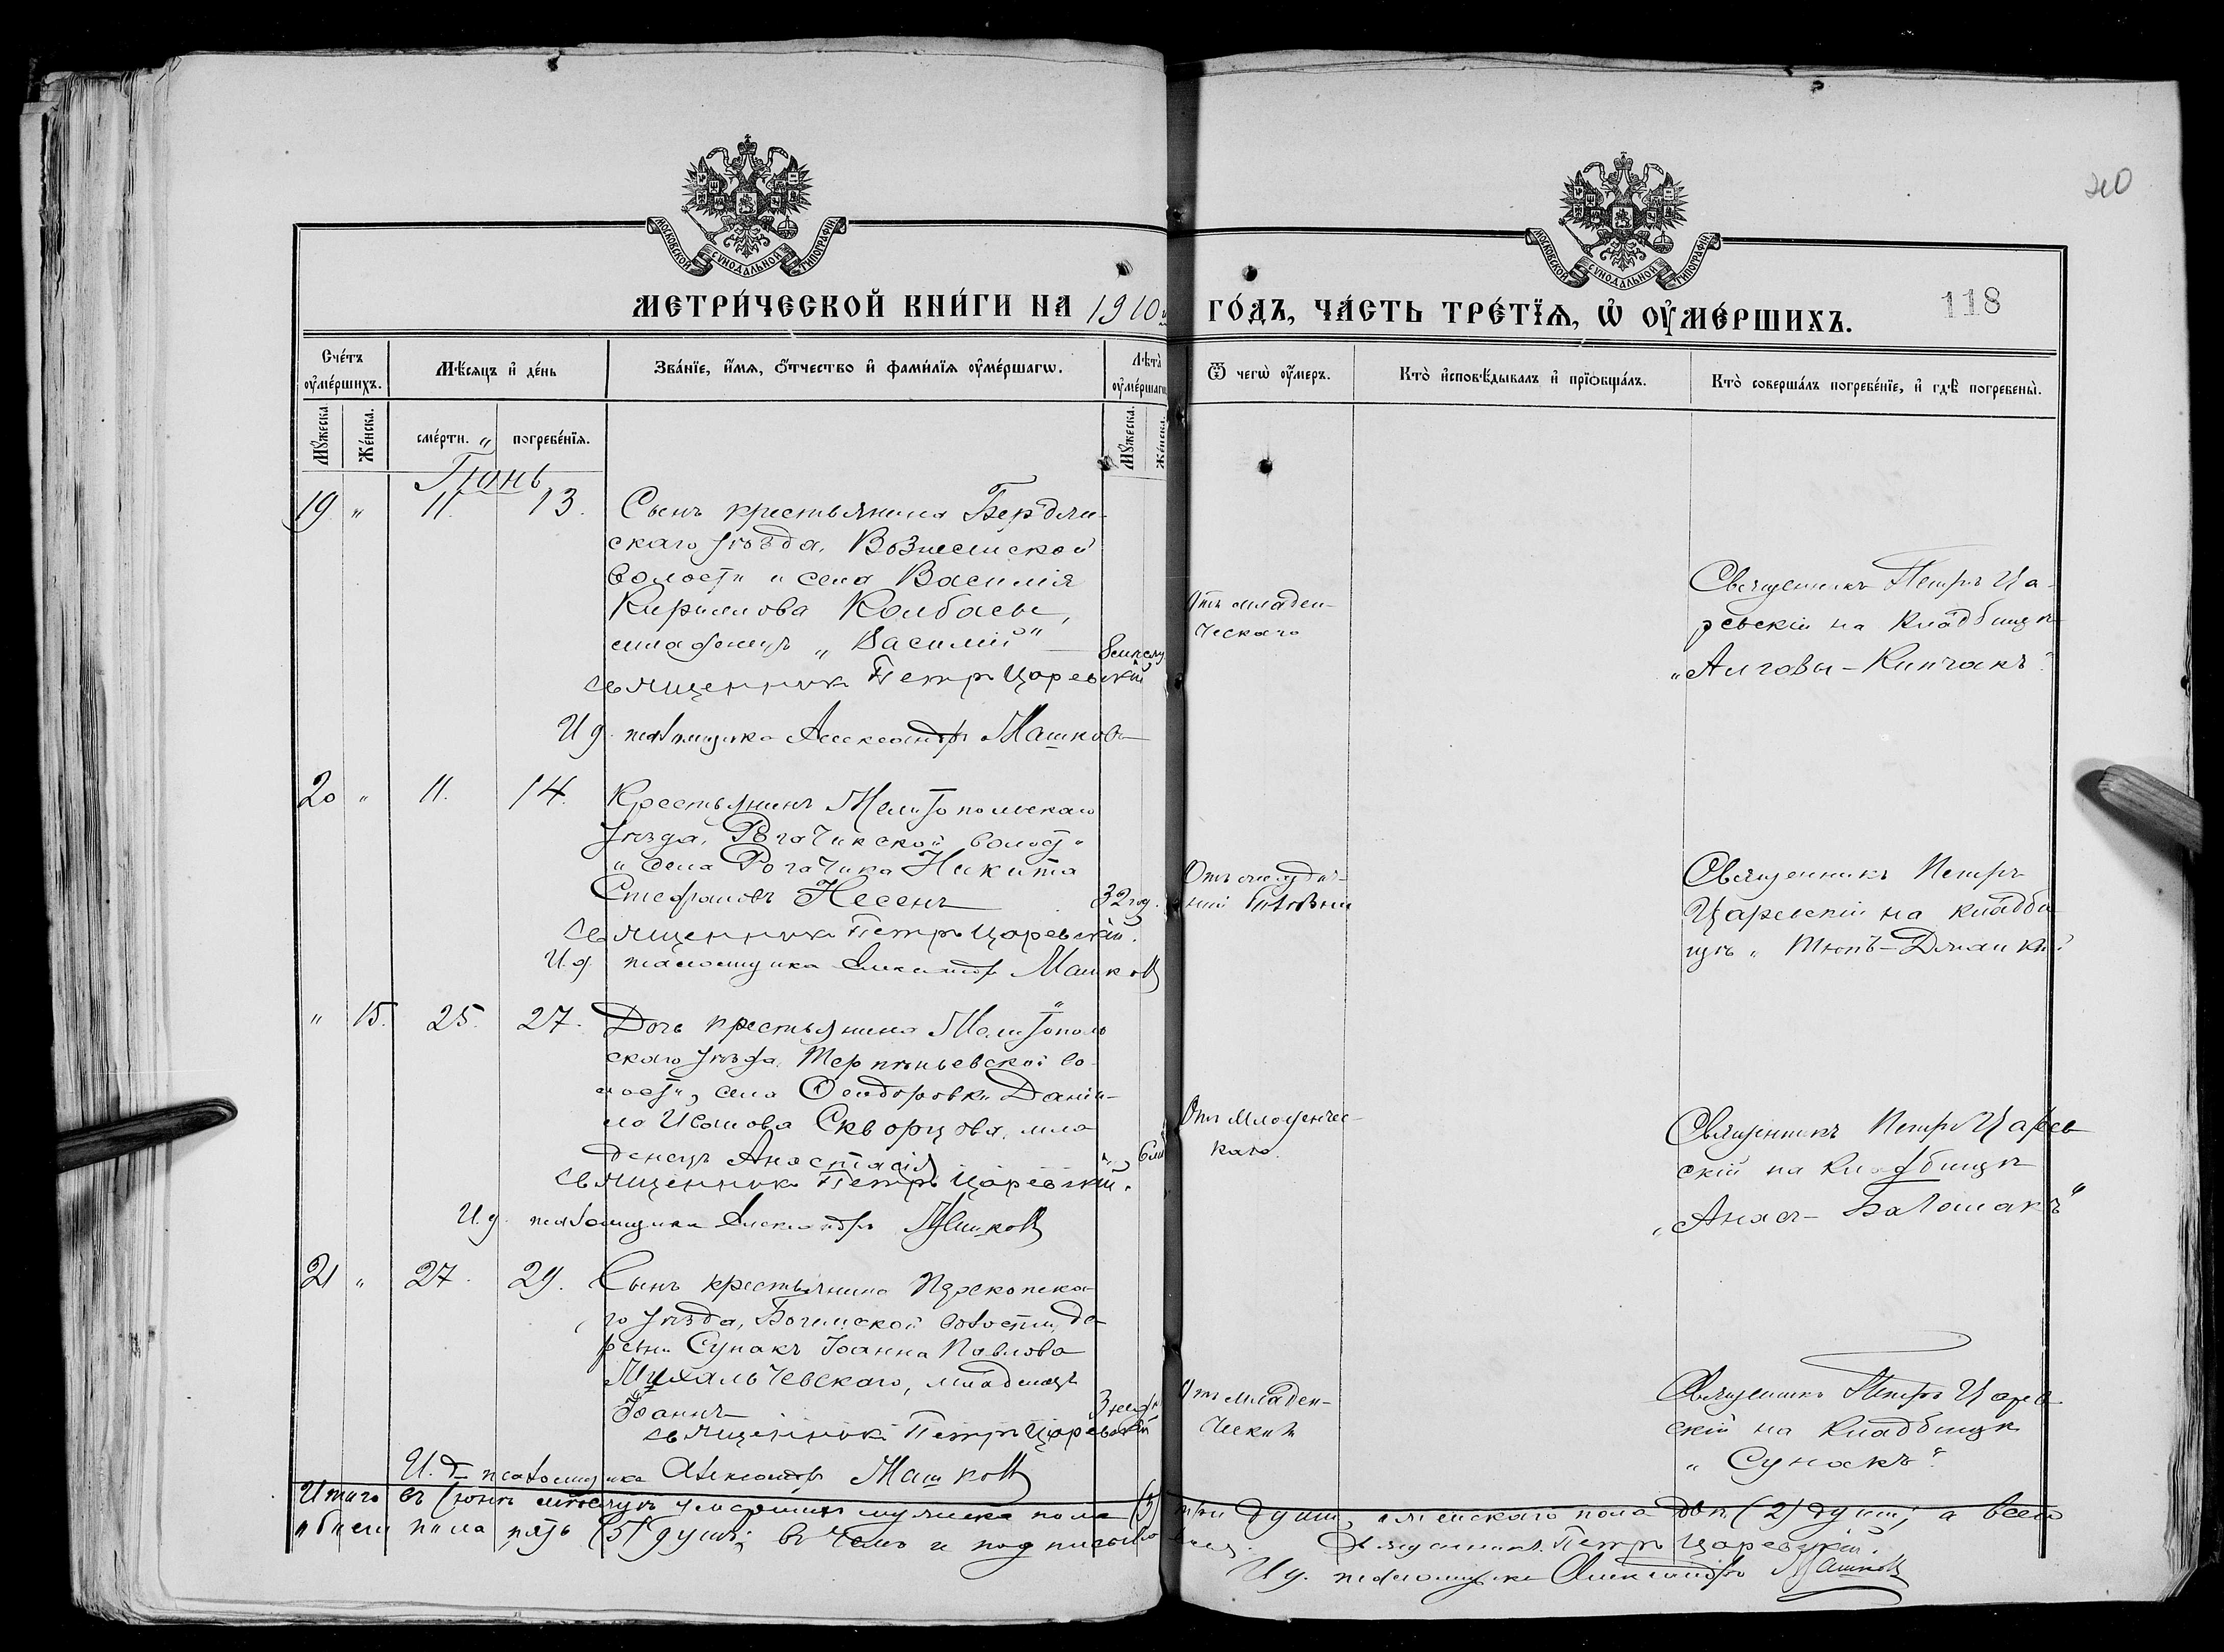 20
МОСКОВСКОЙ СУНОДАЛЬНОЙ ТИПОГРАФІИ
МОСКОВСКОЙ СУНОДАЛЬНОЙ ТИПОГРАФІИ
МЕТРИ́ЧЕСКОЙ КНИ́ГИ НА 1910 ГО́ДЪ, ЧА́СТЬ ТРЕ́ТЇѦ, Ѡ ОУ҆МЕ́РШИХЪ.
118
Сче́тъ оу҆ме́ршихъ.
Мѣ́сяцъ и҆ де́нь
Зва́нїе, и҆́мѧ, ѻ҆́тчество и҆ фами́лїѧ оу҆ме́ршагѡ.
Лѣта̀ оу҆ме́ршагѡ
Ѿ чегѡ̀ оу҆́меръ.
Кто̀ и҆сповѣ́дывалъ и҆ прїѡбща́лъ.
Кто̀ соверша́лъ погребе́нїе, и҆ гдѣ̀ погребены̀.
Мꙋ́жеска.
Же́нска.
сме́рти.
погребе́нїя.
Мꙋ́жеска.
Же́нска.
Іюнь
19 " 11. 13. Сынъ крестьянина Бердян-
скаго уѣзда, Вознесенской
волости и села Василія
Кирилова Колбасы,
младенецъ „Василій"
Священникъ Петръ Царевскій
И д. псаломщика Александръ Машковъ
Отъ младен-
ческаго
Священникъ Петръ Ца-
ревскій на кладбищѣ
„Алговы-Кипчакъ".
20 " 11. 14. Крестьянинъ Мелитопольскаго
уѣзда, Рогачикской волости
и села Рогачика Никита
Стефановъ Несенъ 32 год.
Священникъ Петръ Царевскій.
И.д. псаломщика Александръ Машковъ
Священникъ Петръ
Царевскій на кладби-
щѣ „Тюпъ-Джанкой
" 15. 25. 27. Дочь крестьянина Мелитополь
скаго уѣзда, Терпѣньевской во-
лости, села Феодоровки Даніи-
ла Иванова Скворцова, мла
денецъ Анастасія
Священникъ Петръ Царевскій.
И.д. псаломщика Александръ Машковъ
Отъ младенчес-
каго.
Священникъ Петръ Царев-
скій на кладбищѣ
21 " 27. 29. Сынъ крестьянина Перекопска-
го уѣзда, Богемской волости, де-
ревни Сунакъ Іоанна Павлова
Михальчевскаго, младенецъ
Іоаннъ
Священникъ Петръ Царевскій
И. д. псаломщика Александръ Машковъ
Отъ младен-
ческой
Священникъ Петръ Царев-
скій на кладбищѣ
„Сунакъ".
Итого въ Іюнѣ мѣсяцѣ умершихъ мужеска пола (3) три души, женскаго пола двѣ (2) души; а всего
обоего пола пять (5) душъ; въ чемъ и подписываемся. Священникъ Петръ Царевскій.
И д. псаломщика Александръ Машковъ